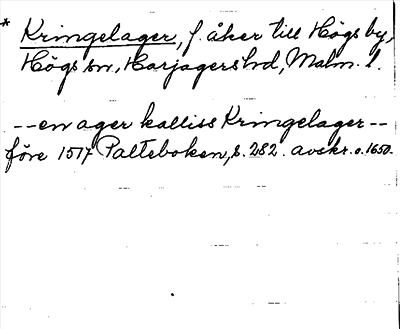 * Kringelager, f. åker till Högs by,
Högs sn, Harjagers hd, Malm. l.
-- en ager kalliss Kringelager --
före 1517 Palteboken, s. 282. avskr. o. 1650.